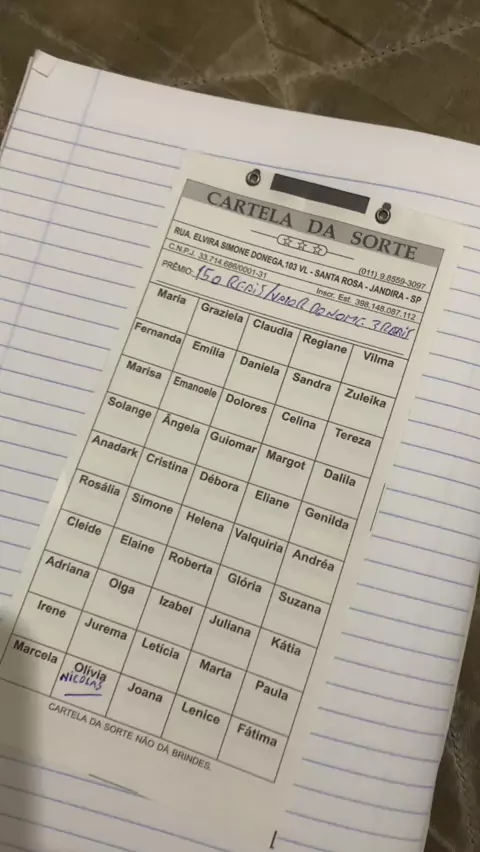 CARTELA DA SORTE
(011) 9.8559-3097
RUA. ELVIRA SIMONE DONEGA,103 VL - SANTA ROSA - JANDIRA - SP
C.N.P.J. 33.714.686/0001-31 Inscr. Est. 398.148.087.112
PRÊMIO: 150 REAIS/VALOR DO NOME 3 REAIS
Maria Graziela Claudia Regiane Vilma
Fernanda Emília Daniela Sandra Zuleika
Marisa Emanoele Dolores Celina Tereza
Solange Ângela Guiomar Margot Dalila
Anadark Cristina Débora Eliane Genilda
Rosália Simone Helena Valquiria Andréa
Cleide Elaine Roberta Glória Suzana
Adriana Olga Izabel Juliana Kátia
Irene Jurema Letícia Marta Paula
Marcela Olívia Joana Lenice Fátima
NICOLAS
CARTELA DA SORTE NÃO DÁ BRINDES.